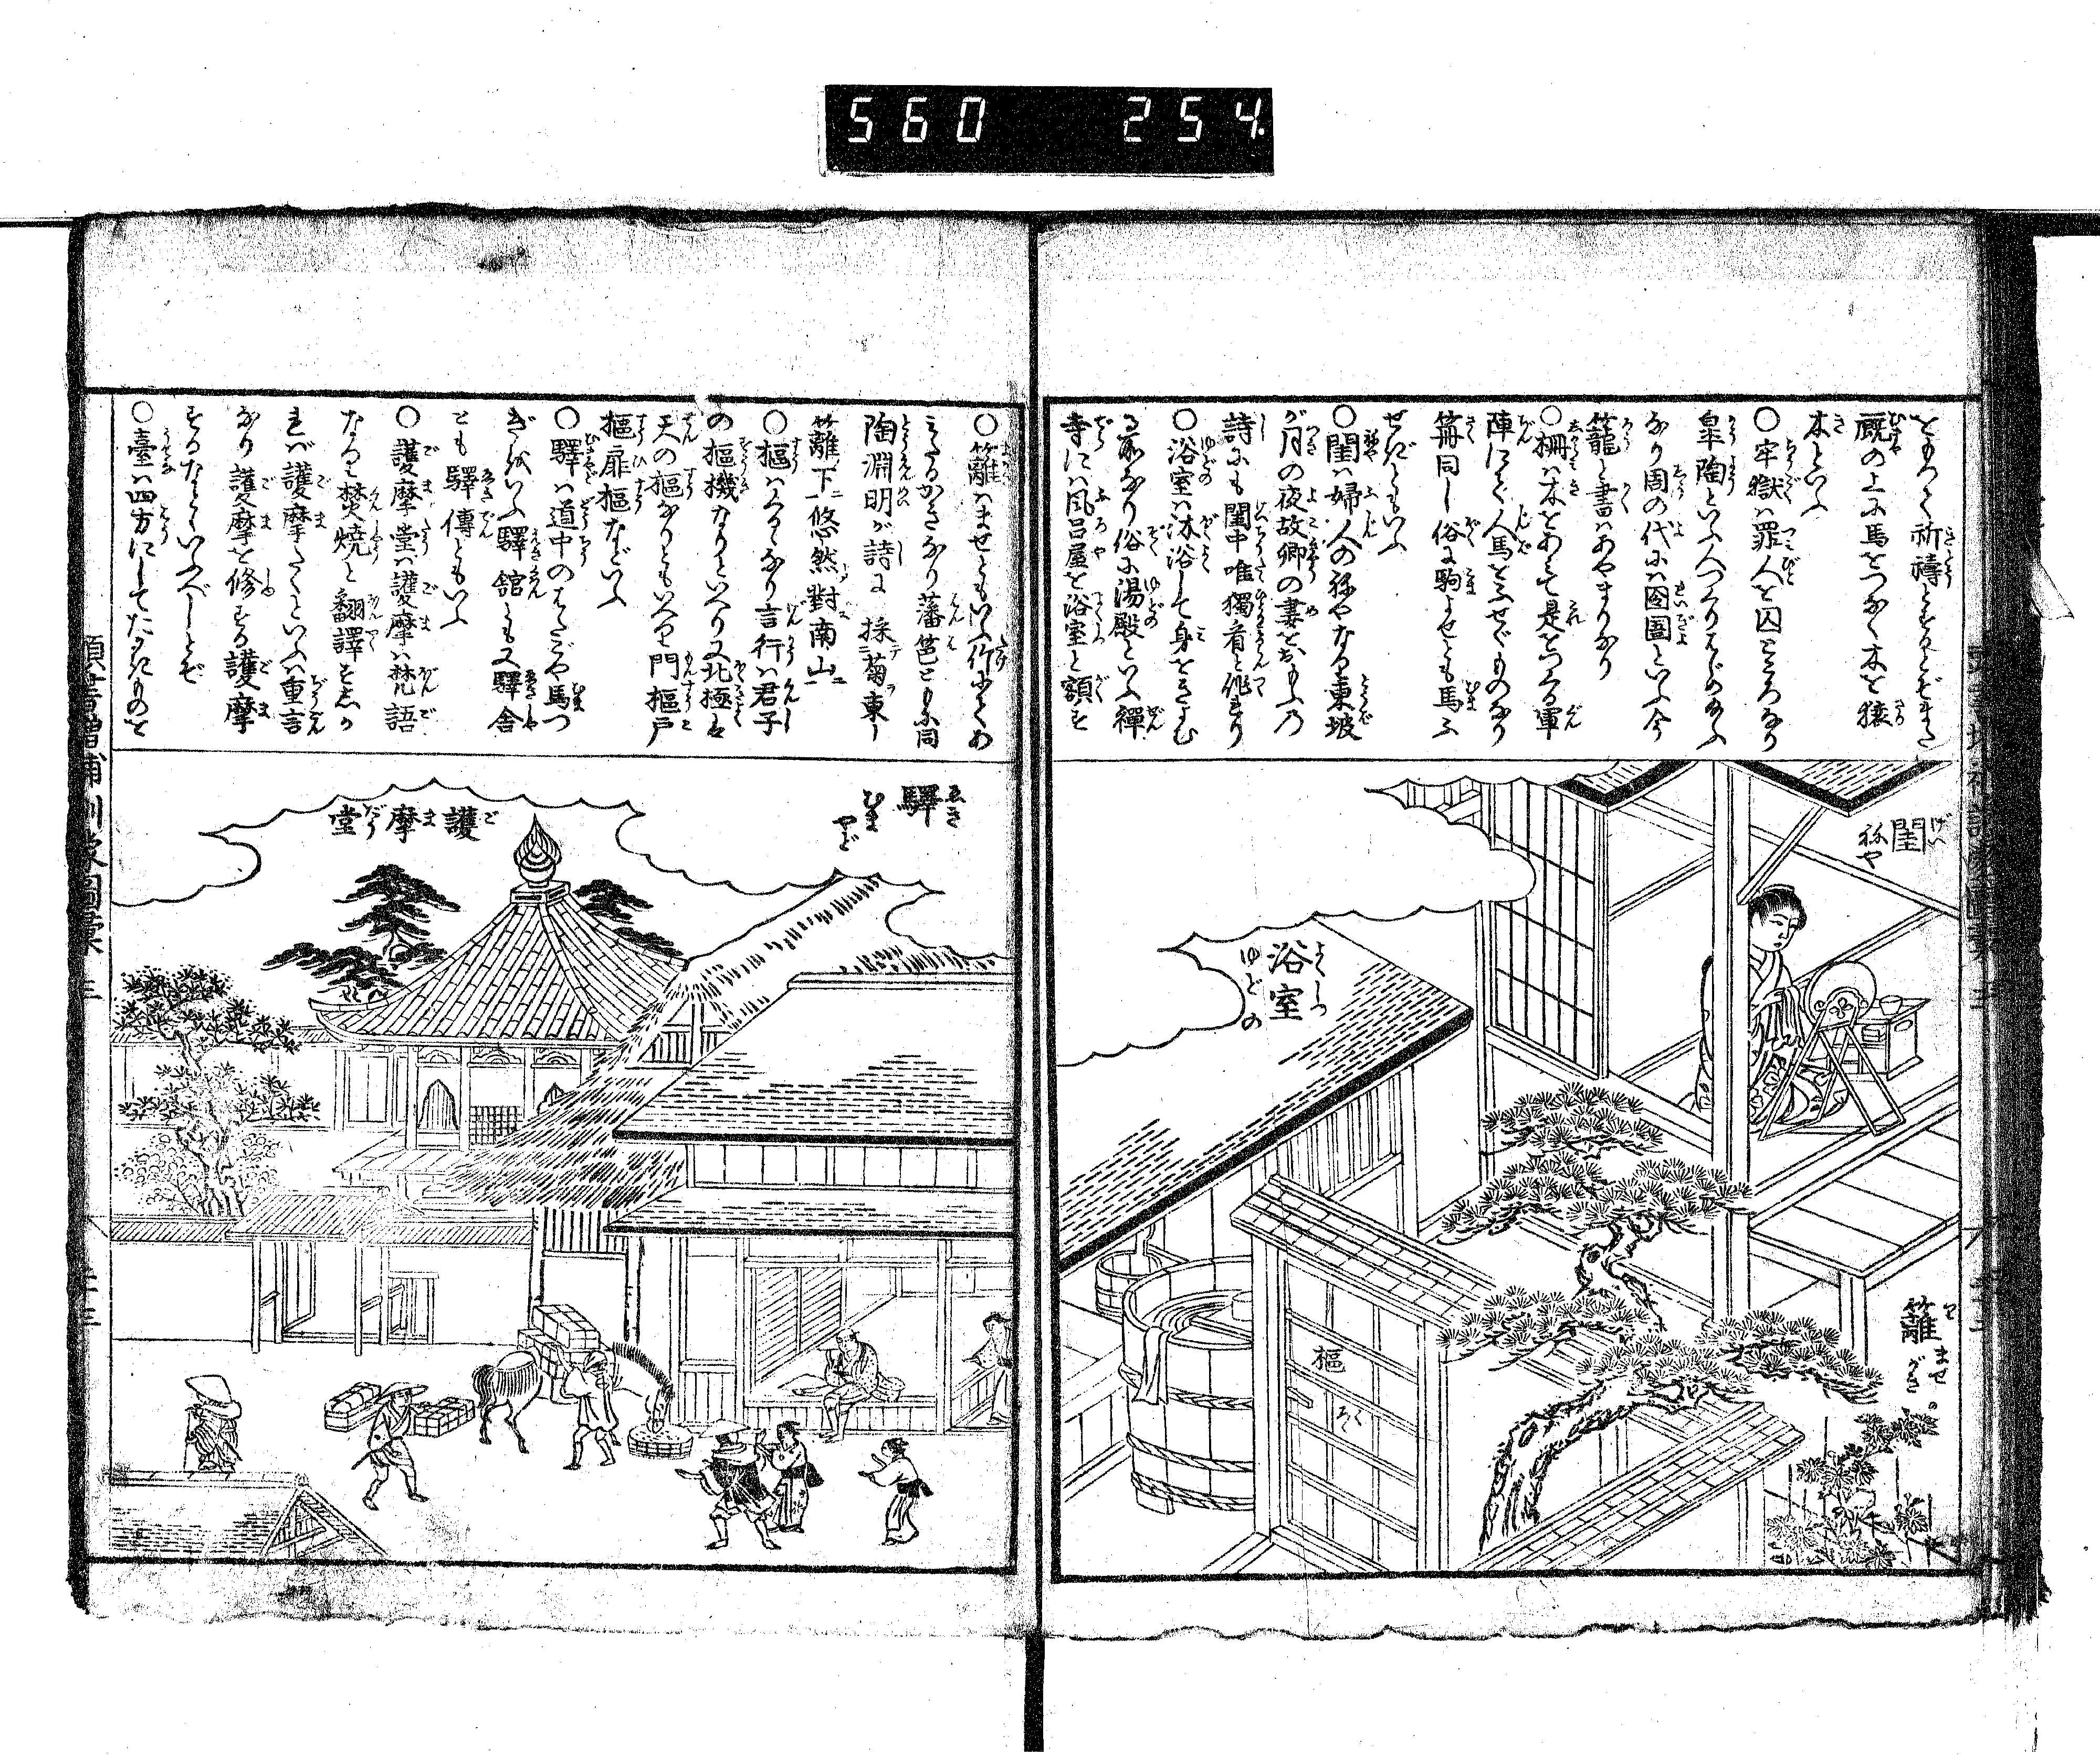 560 254.
とらへて祈禱とするとぞまた
厩の上に馬をつなぐ木を猿
木といふ
○牢獄は罪人を囚ところなり
皐陶といふ人つくりはじめ給ふ
なり周の代には囹圄といふ今
籠と書はあやまりなり
○柵は木をあみて是をつくる軍
陣にて人馬をふせぐものなり
簈同し俗に駒よせとも馬ふ
せぎともいふ
○閨は婦人の祢やなり東坡
が月の夜故郷の妻をおもふ乃
詩にも閨中唯獨看と作れり
○浴室は沐浴して身をきよむ
る所なり俗に湯殿といふ禪
寺には風呂屋を浴室と額す
閨
げい
祢や
浴室
よくしつ
ゆどの
樞
くろゝ
籬
り
ませがき
○籬はませともいふ竹にてあ
みたるかきなり藩笆とも同
陶淵明が詩に採菊東
籬下悠然對南山
○樞はくるゝなり言行は君子
の樞機なりといへり又北極は
天の樞なりともいへり門樞戸
樞扉樞などいふ
○驛は道中のはたごや馬つ
ぎをいふ驛舘とも又驛舎
とも驛傳ともいふ
○護摩堂は護摩は梵語
なり焚燒と翻譯す志か
れば護摩たくといふは重言
なり護摩を修する護摩
するなどゝいふべしとぞ
○臺は四方にしてたかきものを
驛
ゑき
むまやど
護摩堂
ごまだう
頭書增補訓蒙圖彙 三